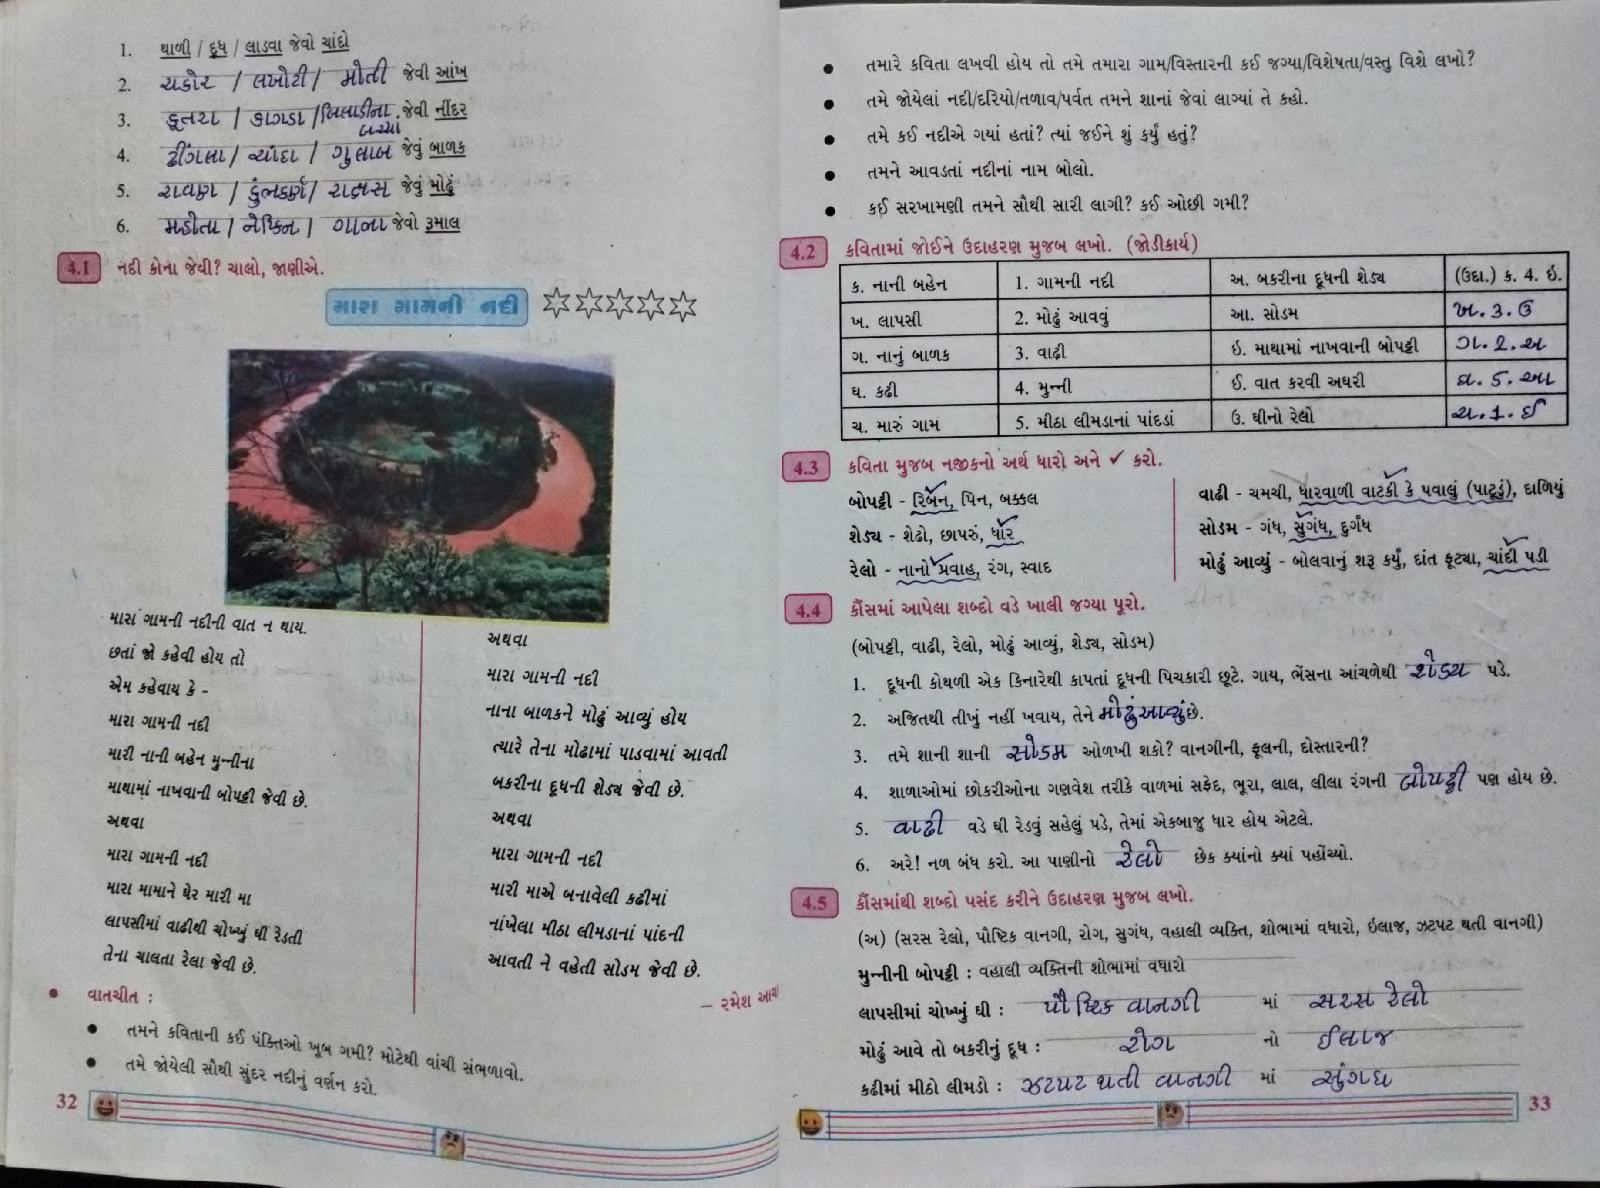 1. થાળી / દૂધ / લાડવા જેવો ચાંદો
2. ચકોર / લખોટી / મોતી જેવી આંખ
3. કૂતરા / કાગડા / બિલાડીના બચ્ચાં જેવી નીંદર
4. ઢીંગલા / ચાંદા / ગુલાબ જેવું બાળક
5. રાવણ / કુંભકર્ણ / રાક્ષસ જેવું મોઢું
6. મહીતા / નેપ્કિન / ગાભા જેવો રૂમાલ
4.1 નદી કોના જેવી? ચાલો, જાણીએ.
મારા ગામની નદી
મારા ગામની નદીની વાત ન થાય.
છતાં જો કહેવી હોય તો
એમ કહેવાય કે -
મારા ગામની નદી
મારી નાની બહેન મુન્નીના
માથામાં નાખવાની બોપટ્ટી જેવી છે.
અથવા
મારા ગામની નદી
મારા મામાને ઘેર મારી મા
લાપસીમાં વાઢીથી ચોખ્ખું ઘી રેડતી
તેના ચાલતા રેલા જેવી છે.
અથવા
મારા ગામની નદી
નાના બાળકને મોઢું આવ્યું હોય
ત્યારે તેના મોઢામાં પાડવામાં આવતી
બકરીના દૂધની શેડ્ય જેવી છે.
અથવા
મારા ગામની નદી
મારી માએ બનાવેલી કઢીમાં
નાંખેલા મીઠા લીમડાનાં પાંદની
આવતી ને વહેતી સોડમ જેવી છે.
– રમેશ આચા
• વાતચીત :
• તમને કવિતાની કઈ પંક્તિઓ ખૂબ ગમી? મોટેથી વાંચી સંભળાવો.
• તમે જોયેલી સૌથી સુંદર નદીનું વર્ણન કરો.
32
• તમારે કવિતા લખવી હોય તો તમે તમારા ગામ/વિસ્તારની કઈ જગ્યા/વિશેષતા/વસ્તુ વિશે લખો?
• તમે જોયેલાં નદી/દરિયો/તળાવ/પર્વત તમને શાનાં જેવાં લાગ્યાં તે કહો.
• તમે કઈ નદીએ ગયાં હતાં? ત્યાં જઈને શું કર્યું હતું?
• તમને આવડતાં નદીનાં નામ બોલો.
• કઈ સરખામણી તમને સૌથી સારી લાગી? કઈ ઓછી ગમી?
4.2 કવિતામાં જોઈને ઉદાહરણ મુજબ લખો. (જોડીકાર્ય)
ક. નાની બહેન 1. ગામની નદી અ. બકરીના દૂધની શેડ્ય (ઉદા.) ક. 4. ઇ.
ખ. લાપસી 2. મોઢું આવવું આ. સોડમ ખ. 3. ઉ
ગ. નાનું બાળક 3. વાઢી ઇ. માથામાં નાખવાની બોપટ્ટી ગ. 2. અ
ઘ. કઢી 4. મુન્ની ઈ. વાત કરવી અઘરી ઘ. 5. આ
ચ. મારું ગામ 5. મીઠા લીમડાનાં પાંદડાં ઉ. ઘીનો રેલો ચ. 1. ઈ
4.3 કવિતા મુજબ નજીકનો અર્થ ધારો અને ✓ કરો.
બોપટ્ટી - રિબન, પિન, બક્કલ
શેડ્ય - શેઢો, છાપરું, ધાર
રેલો - નાનો પ્રવાહ, રંગ, સ્વાદ
વાઢી - ચમચી, ધારવાળી વાટકી કે પવાલું (પાટૂડું), દાળિયું
સોડમ - ગંધ, સુગંધ, દુર્ગંધ
મોઢું આવ્યું - બોલવાનું શરૂ કર્યું, દાંત ફૂટ્યા, ચાંદી પડી
4.4 કૌંસમાં આપેલા શબ્દો વડે ખાલી જગ્યા પૂરો.
(બોપટ્ટી, વાઢી, રેલો, મોઢું આવ્યું, શેડ્ય, સોડમ)
1. દૂધની કોથળી એક કિનારેથી કાપતાં દૂધની પિચકારી છૂટે. ગાય, ભેંસના આંચળેથી શેડ્ય પડે.
2. અજિતથી તીખું નહીં ખવાય, તેને મોઢું આવ્યું છે.
3. તમે શાની શાની સોડમ ઓળખી શકો? વાનગીની, ફૂલની, દોસ્તારની?
4. શાળાઓમાં છોકરીઓના ગણવેશ તરીકે વાળમાં સફેદ, ભૂરા, લાલ, લીલા રંગની બોપટ્ટી પણ હોય છે.
5. વાઢી વડે ઘી રેડવું સહેલું પડે, તેમાં એકબાજુ ધાર હોય એટલે.
6. અરે! નળ બંધ કરો. આ પાણીનો રેલો છેક ક્યાંનો ક્યાં પહોંચ્યો.
4.5 કૌંસમાંથી શબ્દો પસંદ કરીને ઉદાહરણ મુજબ લખો.
(અ) (સરસ રેલો, પૌષ્ટિક વાનગી, રોગ, સુગંધ, વહાલી વ્યક્તિ, શોભામાં વધારો, ઇલાજ, ઝટપટ થતી વાનગી)
મુન્નીની બોપટ્ટી : વહાલી વ્યક્તિની શોભામાં વધારો
લાપસીમાં ચોખ્ખું ઘી : પૌષ્ટિક વાનગી માં સરસ રેલો
મોઢું આવે તો બકરીનું દૂધ : રોગ નો ઈલાજ
કઢીમાં મીઠો લીમડો : ઝટપટ થતી વાનગી માં સુંગધ
33